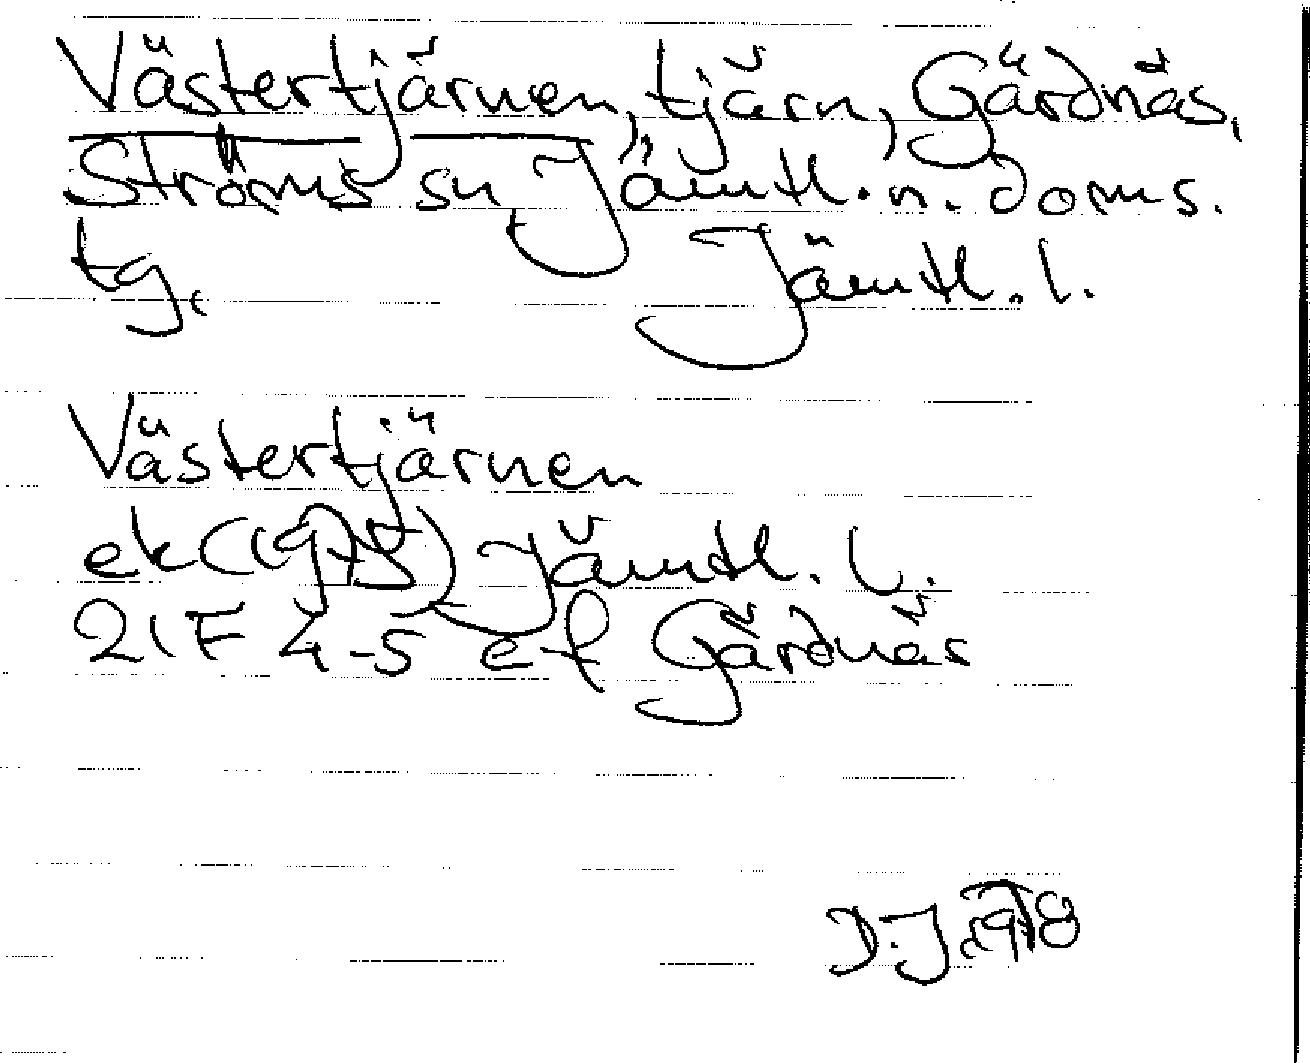 Västertjärnen, tjärn, Gärdnäs,
Ströms sn, Jämtl. n. doms.
tg. Jämtl. l.
Västertjärnen
ek (1975) Jämtl. l.
21F 4-5 e-f Gärdnäs
D.J. 1978